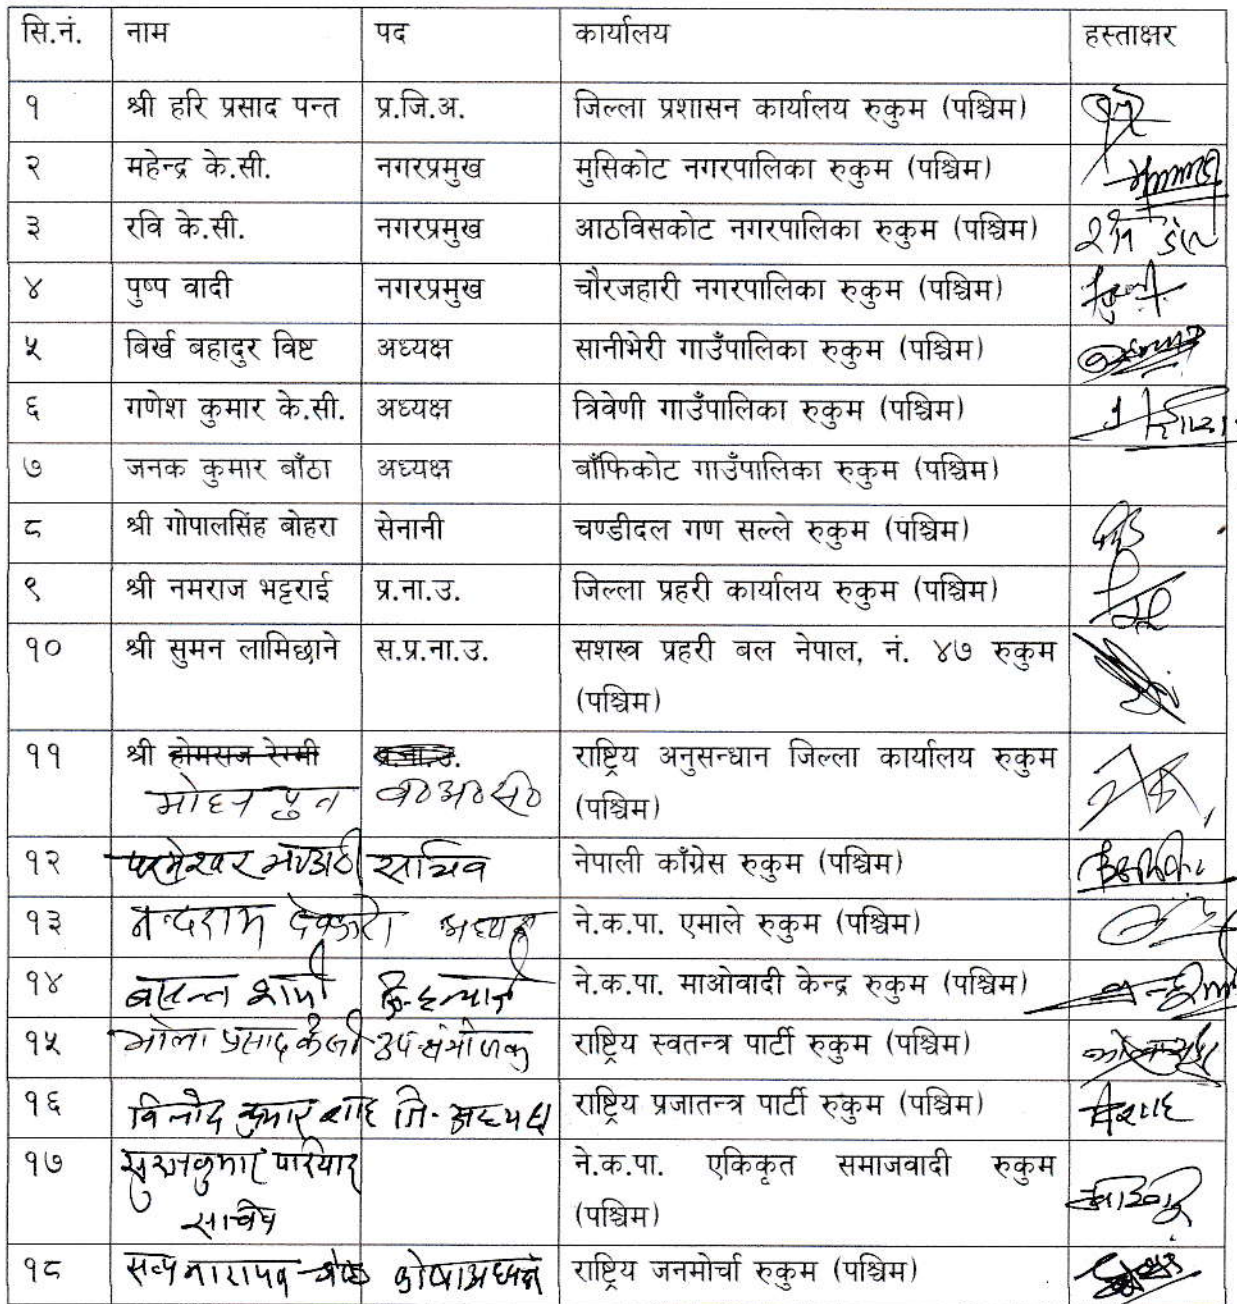 सि.नं. नाम पद कार्यालय हस्ताक्षर
१ श्री हरि प्रसाद पन्त प्र.जि.अ. जिल्ला प्रशासन कार्यालय रुकुम (पश्चिम)
२ महेन्द्र के.सी. नगरप्रमुख मुसिकोट नगरपालिका रुकुम (पश्चिम)
३ रवि के.सी. नगरप्रमुख आठविसकोट नगरपालिका रुकुम (पश्चिम)
४ पुष्प वादी नगरप्रमुख चौरजहारी नगरपालिका रुकुम (पश्चिम)
५ बिर्ख बहादुर विष्ट अध्यक्ष सानीभेरी गाउँपालिका रुकुम (पश्चिम)
६ गणेश कुमार के.सी. अध्यक्ष त्रिवेणी गाउँपालिका रुकुम (पश्चिम)
७ जनक कुमार बाँठा अध्यक्ष बाँफिकोट गाउँपालिका रुकुम (पश्चिम)
८ श्री गोपालसिंह बोहरा सेनानी चण्डीदल गण सल्ले रुकुम (पश्चिम)
९ श्री नमराज भट्टराई प्र.ना.उ. जिल्ला प्रहरी कार्यालय रुकुम (पश्चिम)
१० श्री सुमन लामिछाने स.प्र.ना.उ. सशस्त्र प्रहरी बल नेपाल, नं. ४७ रुकुम
(पश्चिम)
११ श्री होमराज रेग्मी प्र.ना.उ. राष्ट्रिय अनुसन्धान जिल्ला कार्यालय रुकुम
मोहन पुन (पश्चिम)
१२ सचिव नेपाली काँग्रेस रुकुम (पश्चिम)
१३ नन्दराम देवकोटा अध्यक्ष ने.क.पा. एमाले रुकुम (पश्चिम)
१४ बसन्त शर्मा ने.क.पा. माओवादी केन्द्र रुकुम (पश्चिम)
१५ भोला प्रसाद के.सी उपसंयोजक राष्ट्रिय स्वतन्त्र पार्टी रुकुम (पश्चिम)
१६ विनोद कुमार शाह जि. अध्यक्ष राष्ट्रिय प्रजातन्त्र पार्टी रुकुम (पश्चिम)
१७ परियार ने.क.पा. एकिकृत समाजवादी रुकुम
सचिव (पश्चिम)
१८ सत्य नारायण श्रेष्ठ कोषाअध्यक्ष राष्ट्रिय जनमोर्चा रुकुम (पश्चिम)